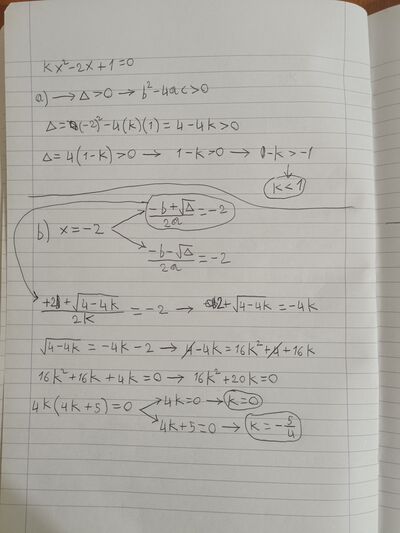 kx²-2x+1=0
a) → Δ>0 → b²-4ac>0
Δ=(-2)²-4(k)(1)=4-4k>0
Δ=4(1-k)>0 → 1-k>0 → -k>-1
↓
k<1
(-b+√Δ)/2a=-2
b) x=-2
(-b-√Δ)/2a=-2
(+2+√(4-4k))/2k=-2 → 2+√(4-4k)=-4k
√(4-4k)=-4k-2 → 4-4k=16k²+4+16k
16k²+16k+4k=0 → 16k²+20k=0
4k(4k+5)=0 → 4k=0 → k=0
→ 4k+5=0 → k=-5/4